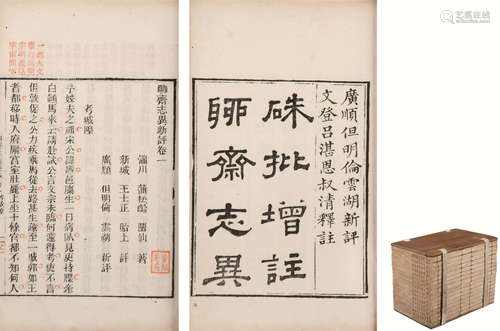 廣順但明倫雲湖新評
文登呂湛恩叔清釋註
硃批增註
聊齋志異
聊齋志異新評卷一
淄川 蒲松齡 留仙 著
新城 王士正 貽上 評
廣順 但明倫 雲湖 新評
考城隍
予姊夫之祖宋公諱燾邑廩生一日病臥見吏持牒牽
白顛馬來云請赴試公言文宗未臨何遽得考吏不言
但敦促之公力疾乘馬從去路甚生疏至一城郭如王
者都移時入府廨宮室壯麗上坐十餘官都不知何人
一部大文